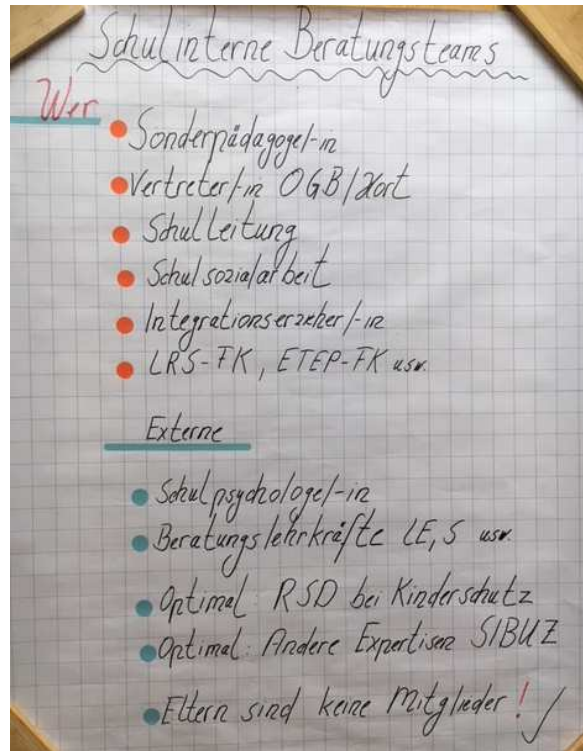 Schulinterne Beratungsteams
Wer
Sonderpädagoge/-in
Vertreter/-in OGB/Hort
Schulleitung
Schulsozialarbeit
Integrationserzieher/-in
LRS-FK, ETEP-FK usw.
Externe
Schulpsychologe/-in
Beratungslehrkräfte LE, S usw.
Optimal: RSD bei Kinderschutz
Optimal: Andere Expertisen SIBUZ
Eltern sind keine Mitglieder!